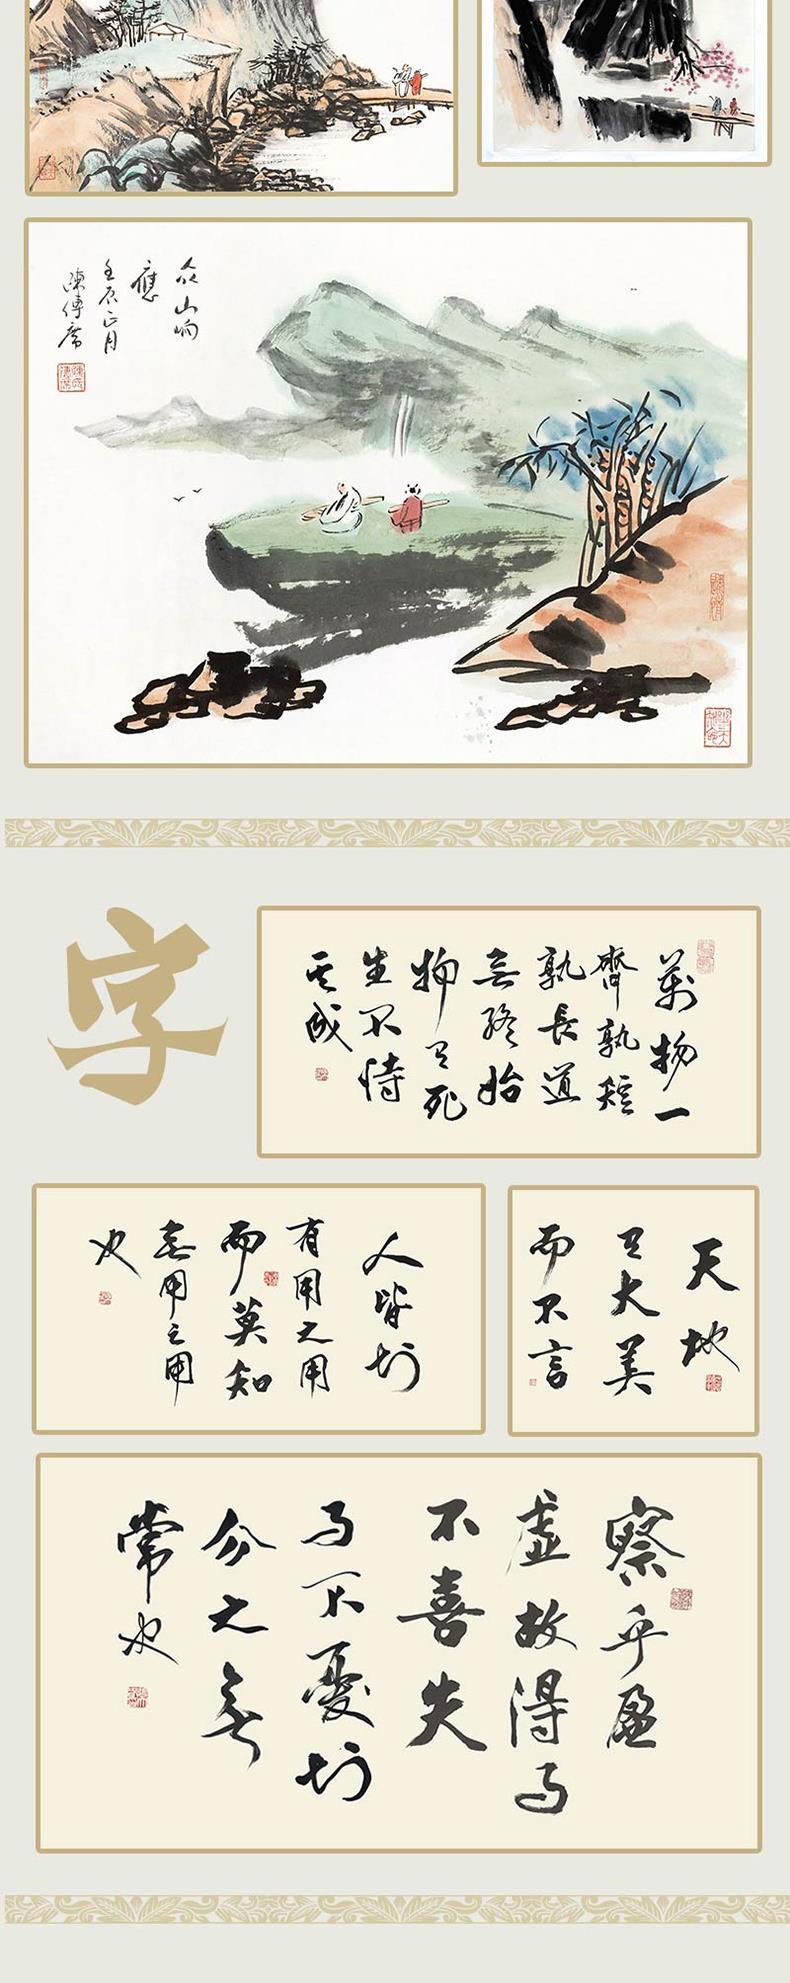 众山响
應
壬辰正月
陳傳席
字
萬物一
齊孰短
孰長道
無終始
物有死
生不恃
其成
人皆知
有用之用
而莫知
無用之用
也
天地
有大美
而不言
察乎盈
虛故得而
不喜失
而不憂知
分之無
常也